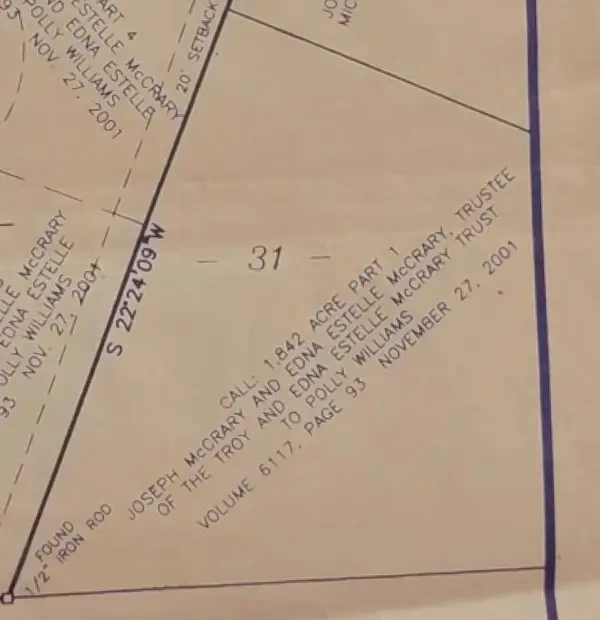 PART 4
ESTELLE McCRARY
ND EDNA ESTELLE
POLLY WILLIAMS
93 NOV. 27, 2001
20' SETBACK
S 22°24'09" W
- 31 -
ELLE McCRARY
EDNA ESTELLE
OLLY WILLIAMS
93 NOV. 27, 2001
CALL: 1.842 ACRE PART 1
JOSEPH McCRARY AND EDNA ESTELLE McCRARY, TRUSTEE
OF THE TROY AND EDNA ESTELLE McCRARY TRUST
TO POLLY WILLIAMS
VOLUME 6117, PAGE 93 NOVEMBER 27, 2001
FOUND
1/2" IRON ROD
JO
MIC